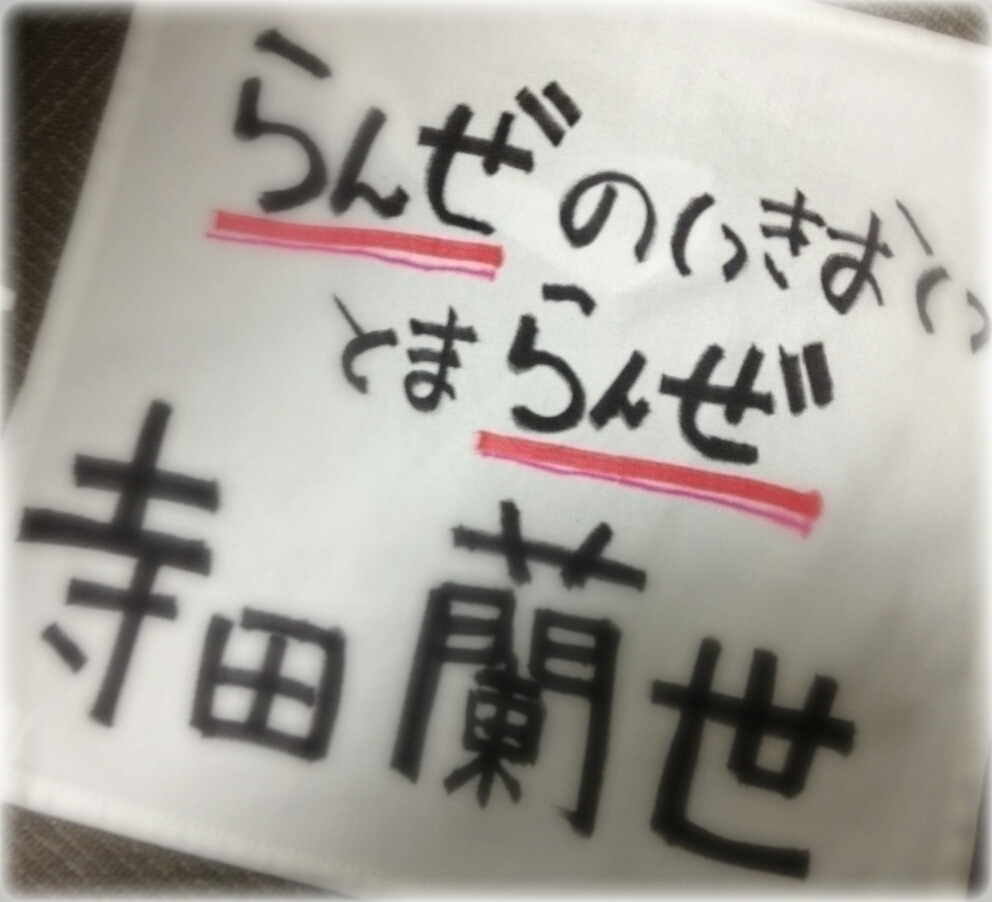 らんぜのいきおい
とまらんぜ
寺田蘭世